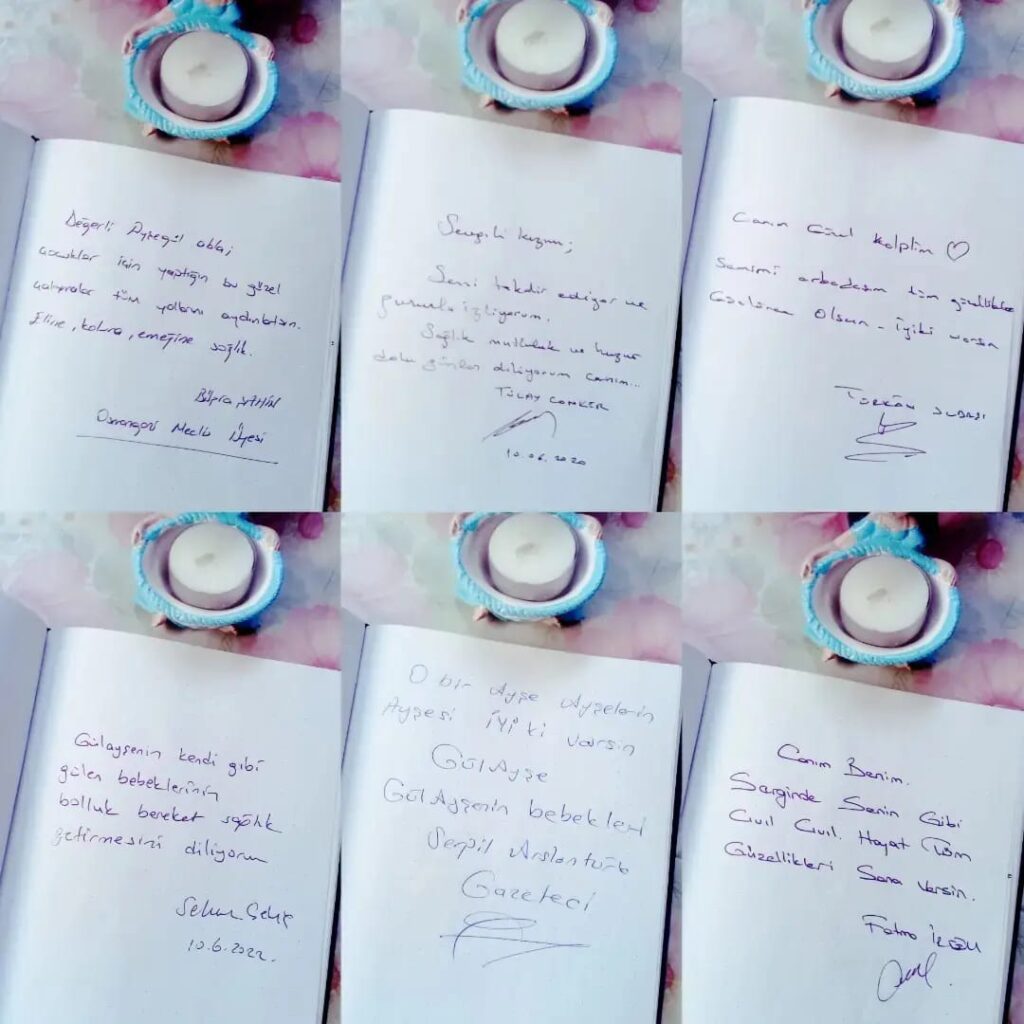 Değerli Ayşegül abla;
çocuklar için yaptığın bu güzel
çalışmalar tüm yollarını aydınlatsın.
Eline, koluna, emeğine sağlık.
Büşra ŞAHİN
Osmangazi Meclis Üyesi
Sevgili kuzum;
Seni takdir ediyor ve
gururla izliyorum.
Sağlık mutluluk ve huzur
dolu günler diliyorum canım...
TÜLAY
10.06.2020
Canım Güzel Kalplim ♡
Samimi arkadaşım tüm güzellikler
Olsun - İyiki varsın
TÜRKAN SUBAŞI
Gülayşenin kendi gibi
gülen bebeklerinin
bolluk bereket sağlık
getirmesini diliyorum
10.6.2022.
O bir Ayşe Ayşelerin
Ayşesi İYİ ki varsın
GülAyşe
GülAyşenin bebekleri
Serpil Arslantürk
Gazeteci
Canım Benim.
Serginde Senin Gibi
Cıvıl Cıvıl. Hayat Tüm
Güzellikleri Sana Versin.
Fatma